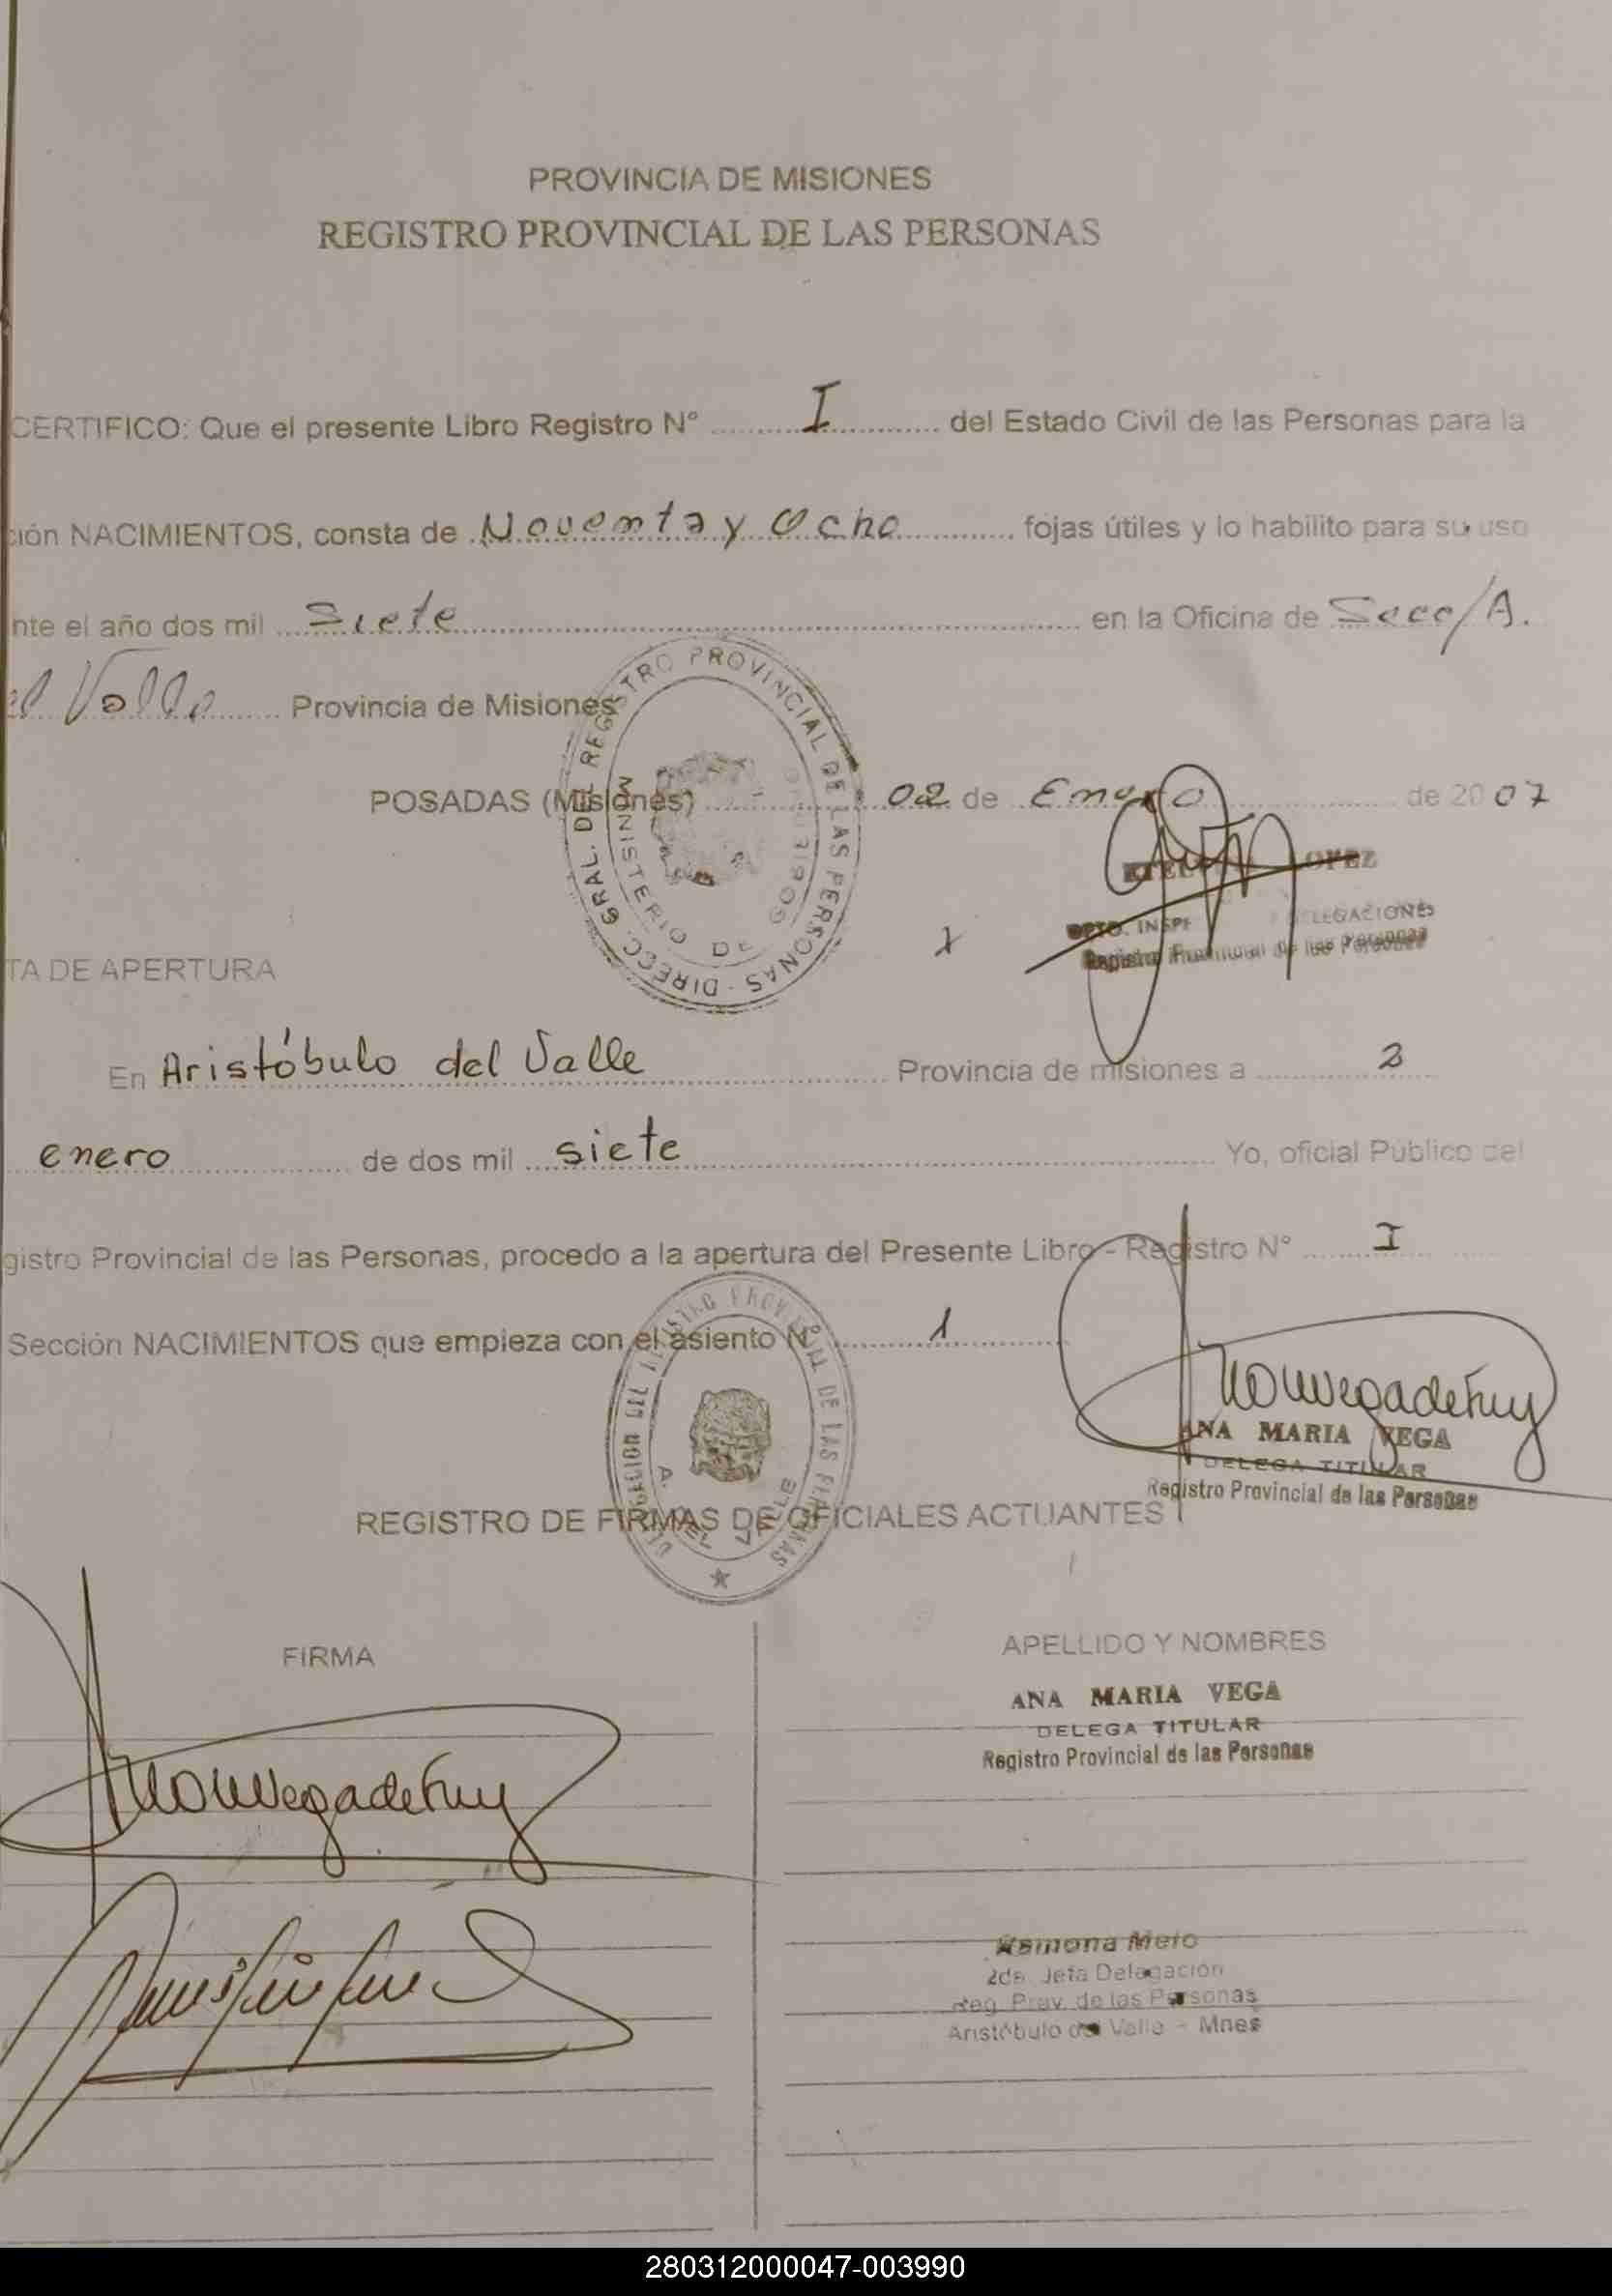 PROVINCIA DE MISIONES
REGISTRO PROVINCIAL DE LAS PERSONAS
CERTIFICO: Que el presente Libro Registro N° I del Estado Civil de las Personas para la
ción NACIMIENTOS, consta de Noventa y Ocho fojas útiles y lo habilito para su uso
nte el año dos mil Siete en la Oficina de Secc/A.
el Valle Provincia de Misiones
POSADAS (Misiones) 02 de Enero de 2007
DIRECC. GRAL. DE REGISTRO PROVINCIAL DE LAS PERSONAS
MINISTERIO DE GOBIERNO
LOPEZ
DPTO. INSP DELEGACIONES
Registro Provincial de las Personas
TA DE APERTURA
En Aristóbulo del Valle Provincia de misiones a 2
enero de dos mil siete Yo, oficial Público del
gistro Provincial de las Personas, procedo a la apertura del Presente Libro - Registro N° I
Sección NACIMIENTOS que empieza con el asiento N° 1
DELEGACION DEL REGISTRO PROVINCIAL DE LAS PERSONAS
A. DEL VALLE
ANA MARIA VEGA
DELEGA TITULAR
Registro Provincial de las Personas
REGISTRO DE FIRMAS DE OFICIALES ACTUANTES
FIRMA
APELLIDO Y NOMBRES
ANA MARIA VEGA
DELEGA TITULAR
Registro Provincial de las Personas
Ramona Melo
2da. Jefa Delegación
Reg. Prov. de las Personas
Aristóbulo del Valle - Mnes
280312000047-003990